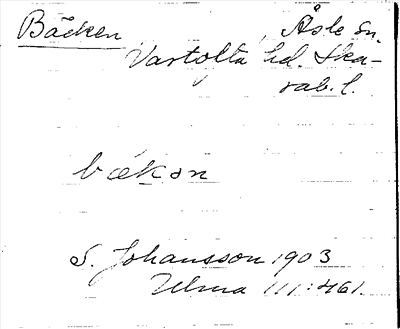 Bäcken, Åsle sn.
Vartofta hd. Ska-
rab. l.
bækən
S. Johansson 1903
Ulma 111:461.